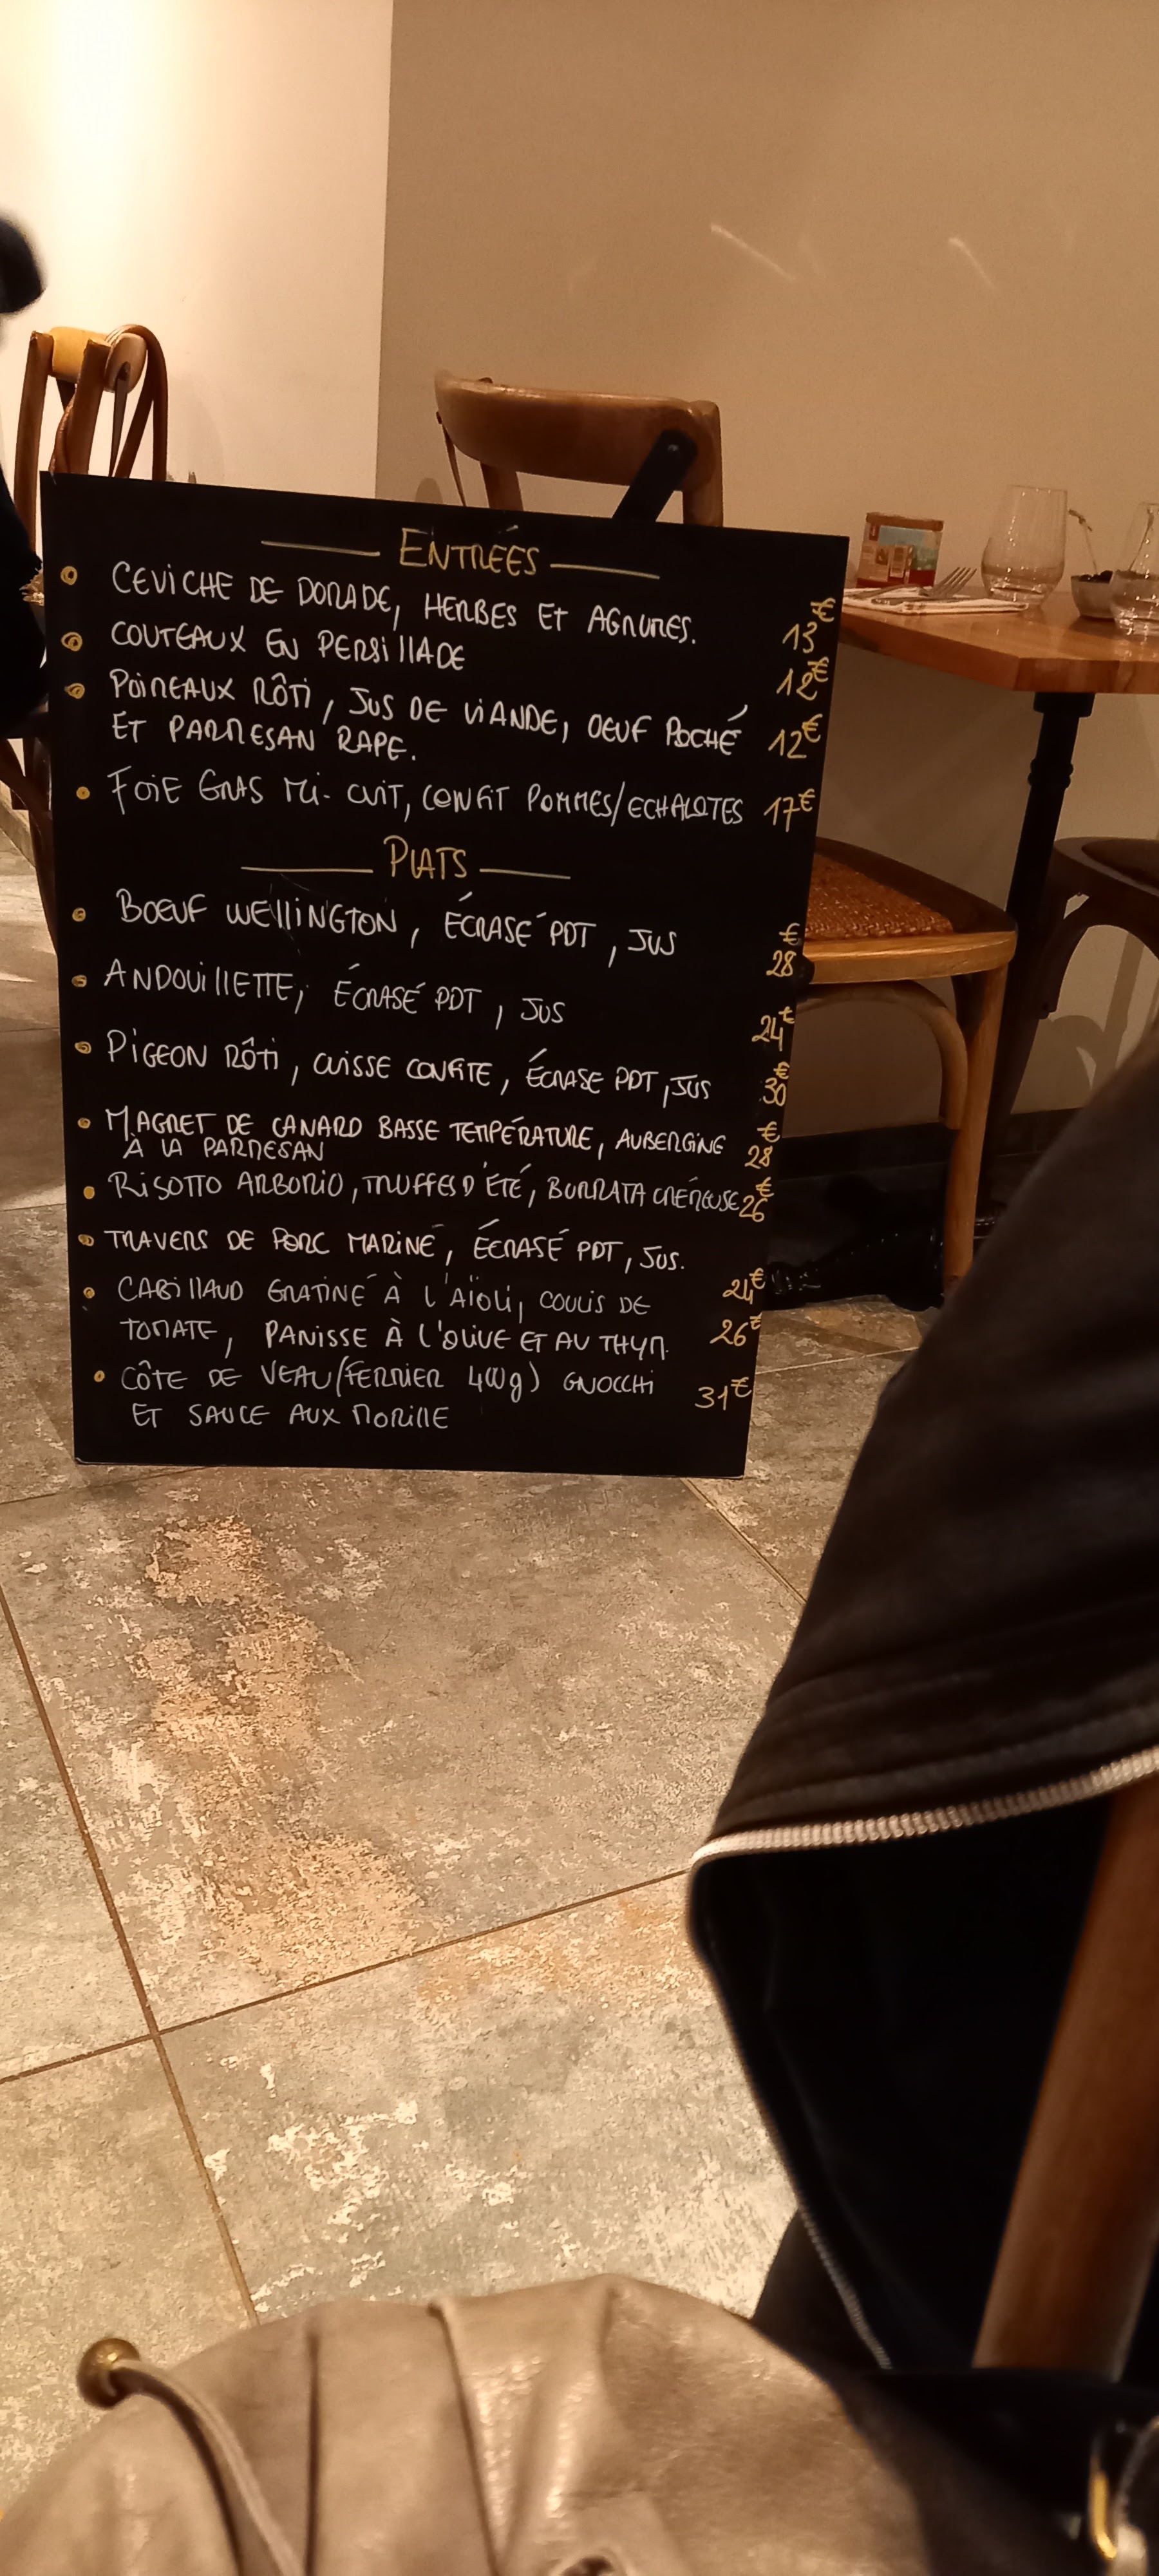 ENTRÉES
CEVICHE DE DORADE, HERBES ET AGRUMES. 13€
COUTEAUX EN PERSILLADE 12€
POIREAUX RÔTI, JUS DE VIANDE, OEUF POCHÉ 12€
ET PARMESAN RAPE.
FOIE GRAS MI-CUIT, CONFIT POMMES/ECHALOTES 17€
PLATS
BOEUF WELLINGTON, ÉCRASÉ PDT, JUS 28€
ANDOUILLETTE, ÉCRASÉ PDT, JUS 24€
PIGEON RÔTI, CUISSE CONFITE, ÉCRASE PDT, JUS 30€
MAGRET DE CANARD BASSE TEMPÉRATURE, AUBERGINE 28€
À LA PARMESAN
RISOTTO ARBORIO, TRUFFES D'ÉTÉ, BURRATA CRÉMEUSE 26€
TRAVERS DE PORC MARINÉ, ÉCRASÉ PDT, JUS. 24€
CABILLAUD GRATINÉ À L'AÏOLI, COULIS DE
TOMATE, PANISSE À L'OLIVE ET AU THYM. 26€
CÔTE DE VEAU (FERMIER 400g) GNOCCHI 31€
ET SAUCE AUX MORILLE